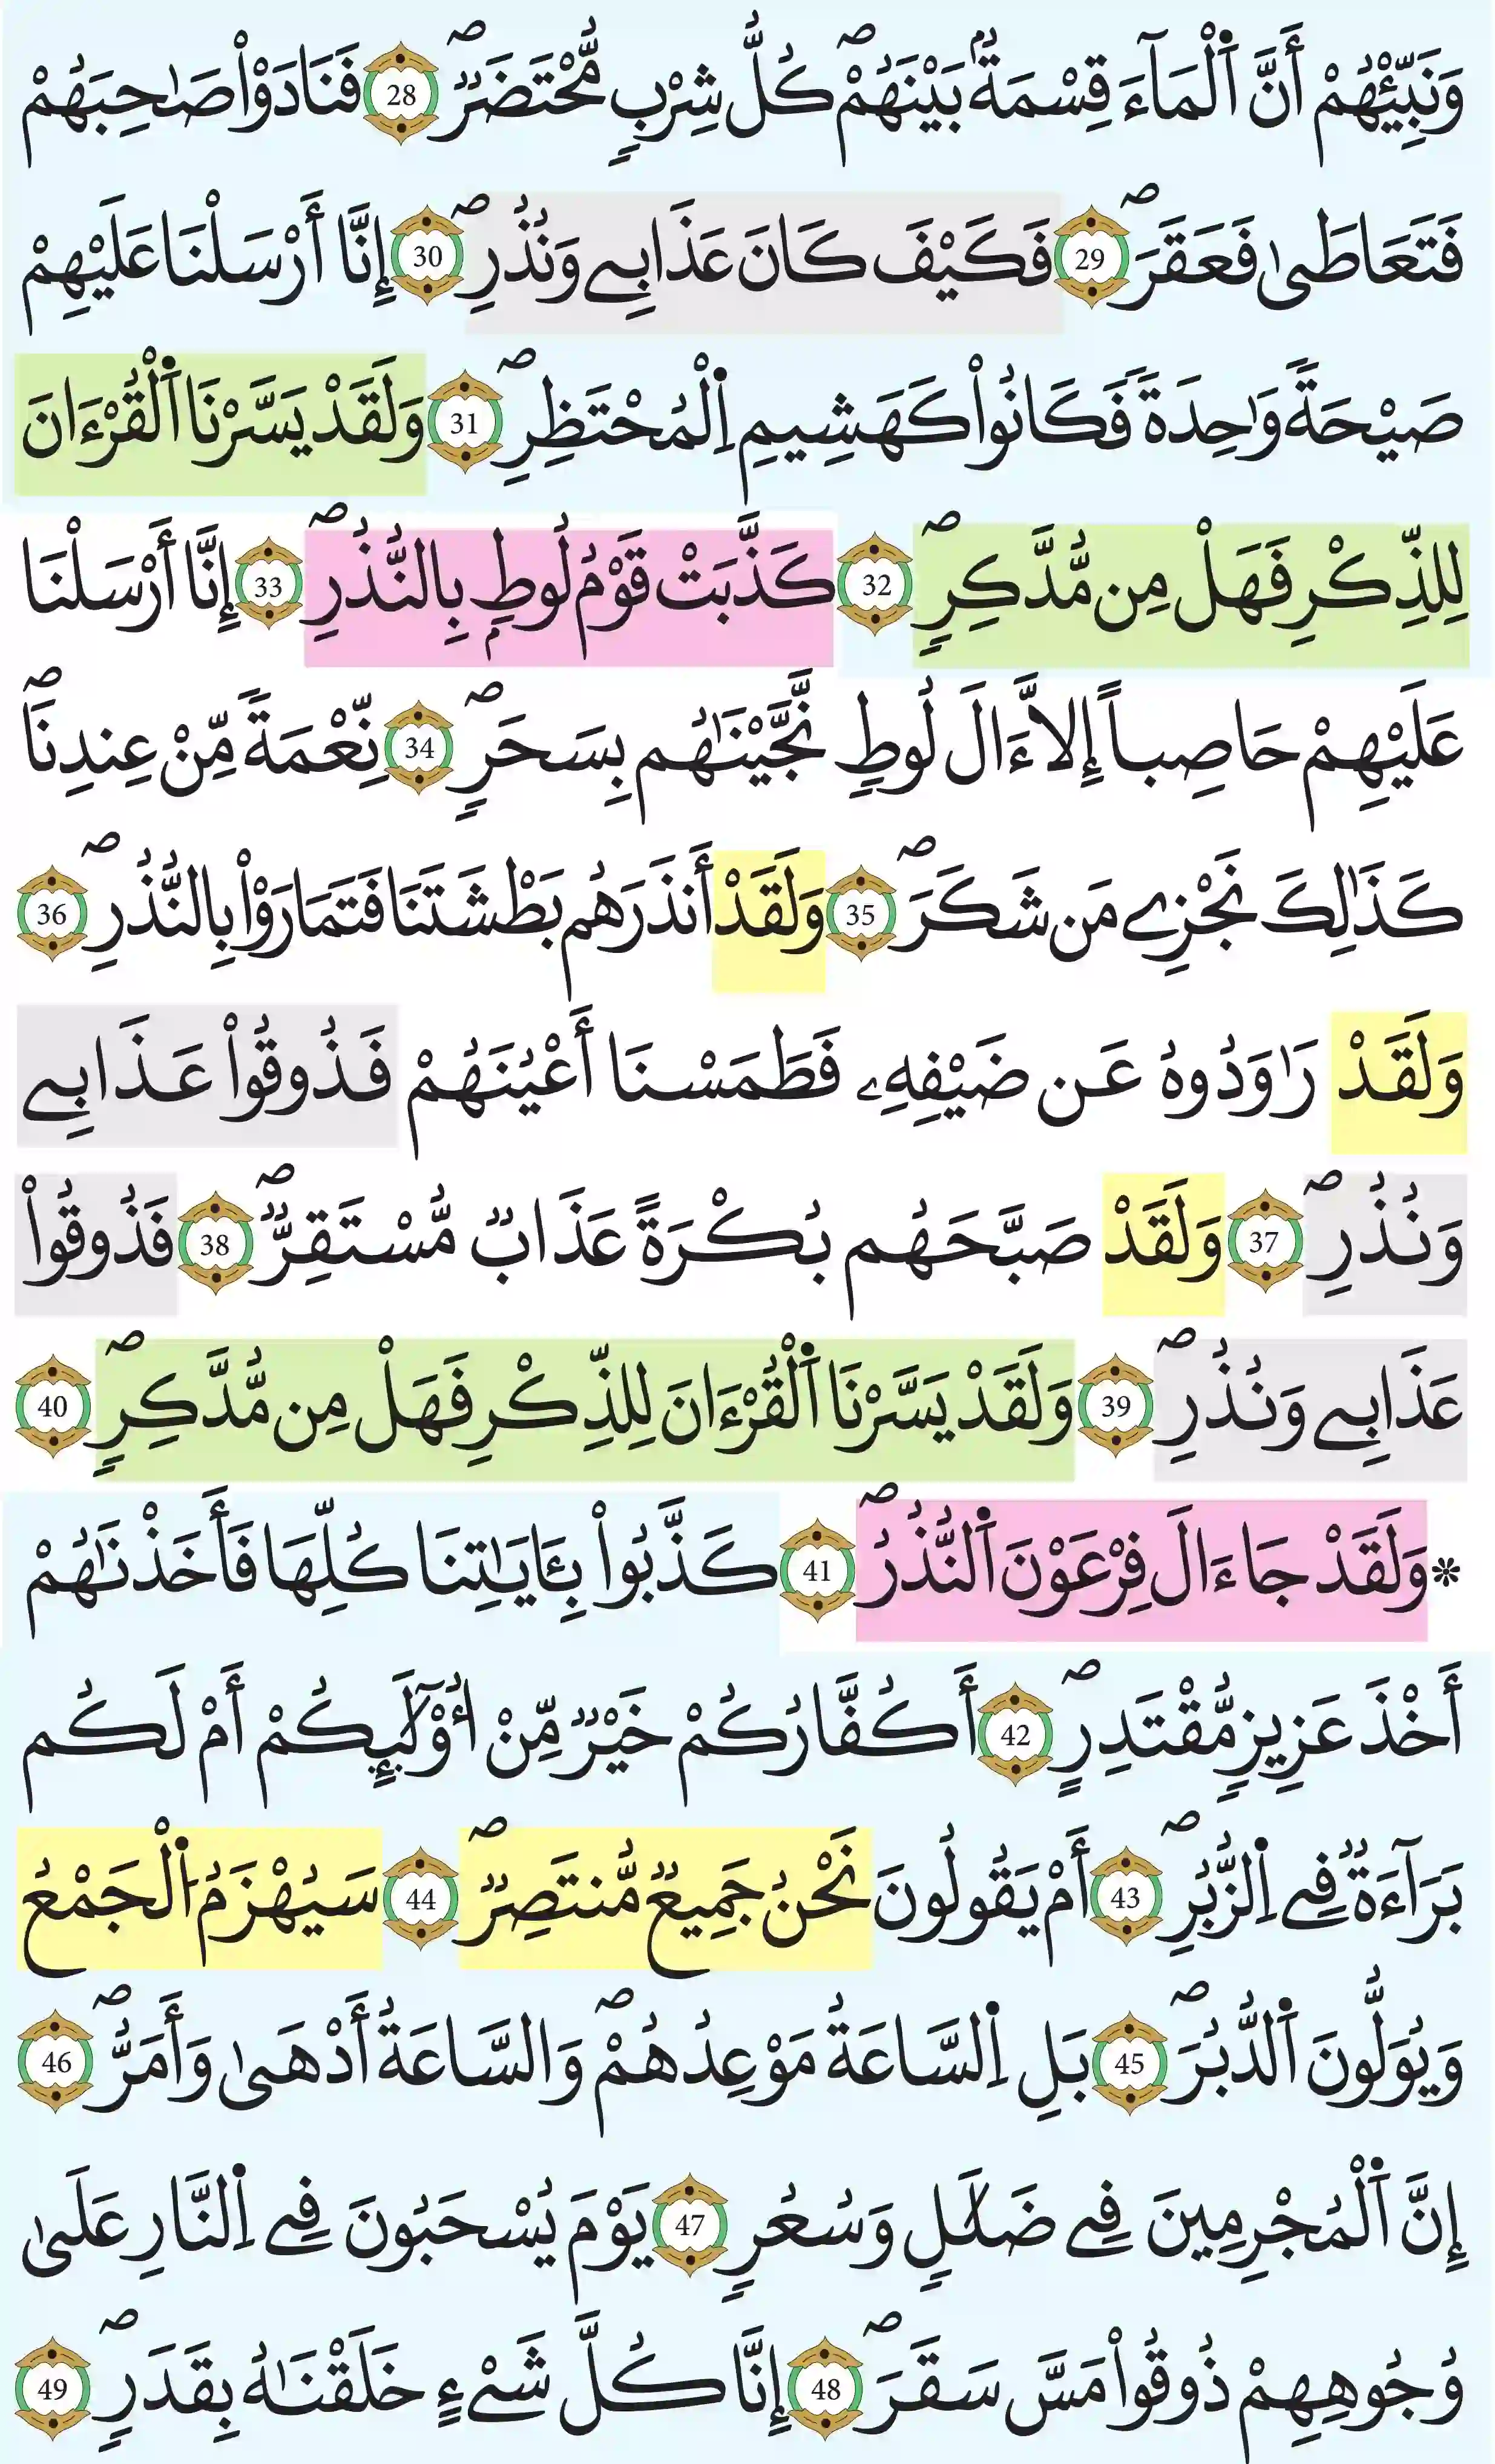 وَنَبِّئْهُمْ أَنَّ اَ۬لْمَآءَ قِسْمَةُۢ بَيْنَهُمْۖ كُلُّ شِرْبٖ مُّحْتَضَرٞۖ 28 فَنَادَوْاْ صَٰحِبَهُمْ
فَتَعَاطَىٰ فَعَقَرَۖ 29 فَكَيْفَ كَانَ عَذَابِے وَنُذُرِۖ 30 إِنَّا أَرْسَلْنَا عَلَيْهِمْ
صَيْحَةٗ وَٰحِدَةٗ فَكَانُواْ كَهَشِيمِ اِ۬لْمُحْتَظِرِۖ 31 وَلَقَدْ يَسَّرْنَا اَ۬لْقُرْءَانَ
لِلذِّكْرِ فَهَلْ مِن مُّدَّكِرٖۖ 32 كَذَّبَتْ قَوْمُ لُوطِۢ بِالنُّذُرِۖ 33 إِنَّا أَرْسَلْنَا
عَلَيْهِمْ حَاصِباً إِلَّا ءَالَ لُوطٖ نَّجَّيْنَٰهُم بِسَحَرٖۖ 34 نِّعْمَةٗ مِّنْ عِندِنَاۖ
كَذَٰلِكَ نَجْزِے مَن شَكَرَۖ 35 وَلَقَدْ أَنذَرَهُم بَطْشَتَنَا فَتَمَارَوْاْ بِالنُّذُرِۖ 36
وَلَقَدْ رَٰوَدُوهُ عَن ضَيْفِهِۦ فَطَمَسْنَا أَعْيُنَهُمْ فَذُوقُواْ عَذَابِے
وَنُذُرِۖ 37 وَلَقَدْ صَبَّحَهُم بُكْرَةً عَذَابٞ مُّسْتَقِرّٞۖ 38 فَذُوقُواْ
عَذَابِے وَنُذُرِۖ 39 وَلَقَدْ يَسَّرْنَا اَ۬لْقُرْءَانَ لِلذِّكْرِ فَهَلْ مِن مُّدَّكِرٖۖ 40
* وَلَقَدْ جَاءَ الَ فِرْعَوْنَ اَ۬لنُّذُرُۖ 41 كَذَّبُواْ بِـَٔايَٰتِنَا كُلِّهَا فَأَخَذْنَٰهُمْ
أَخْذَ عَزِيزٖ مُّقْتَدِرٍۖ 42 أَكُفَّارُكُمْ خَيْرٞ مِّنْ أُوْلَٰٓئِكُمْ أَمْ لَكُم
بَرَآءَةٞ فِے اِ۬لزُّبُرِۖ 43 أَمْ يَقُولُونَ نَحْنُ جَمِيعٞ مُّنتَصِرٞۖ 44 سَيُهْزَمُ اُ۬لْجَمْعُ
وَيُوَلُّونَ اَ۬لدُّبُرَۖ 45 بَلِ اِ۬لسَّاعَةُ مَوْعِدُهُمْۖ وَالسَّاعَةُ أَدْهَىٰ وَأَمَرُّۖ 46
إِنَّ اَ۬لْمُجْرِمِينَ فِے ضَلَٰلٖ وَسُعُرٖ 47 يَوْمَ يُسْحَبُونَ فِے اِ۬لنَّارِ عَلَىٰ
وُجُوهِهِمْ ذُوقُواْ مَسَّ سَقَرَۖ 48 إِنَّا كُلَّ شَےْءٍ خَلَقْنَٰهُ بِقَدَرٖۖ 49